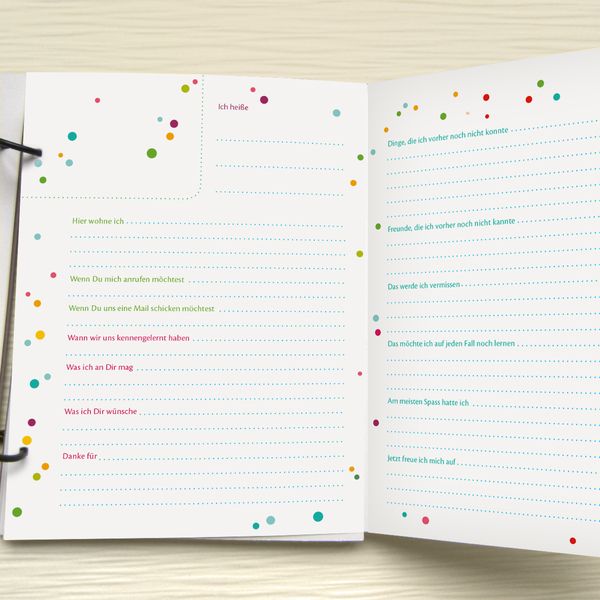 Ich heiße
Hier wohne ich
Wenn Du mich anrufen möchtest
Wenn Du uns eine Mail schicken möchtest
Wann wir uns kennengelernt haben
Was ich an Dir mag
Was ich Dir wünsche
Danke für
Dinge, die ich vorher noch nicht konnte
Freunde, die ich vorher noch nicht kannte
Das werde ich vermissen
Das möchte ich auf jeden Fall noch lernen
Am meisten Spass hatte ich
Jetzt freue ich mich auf